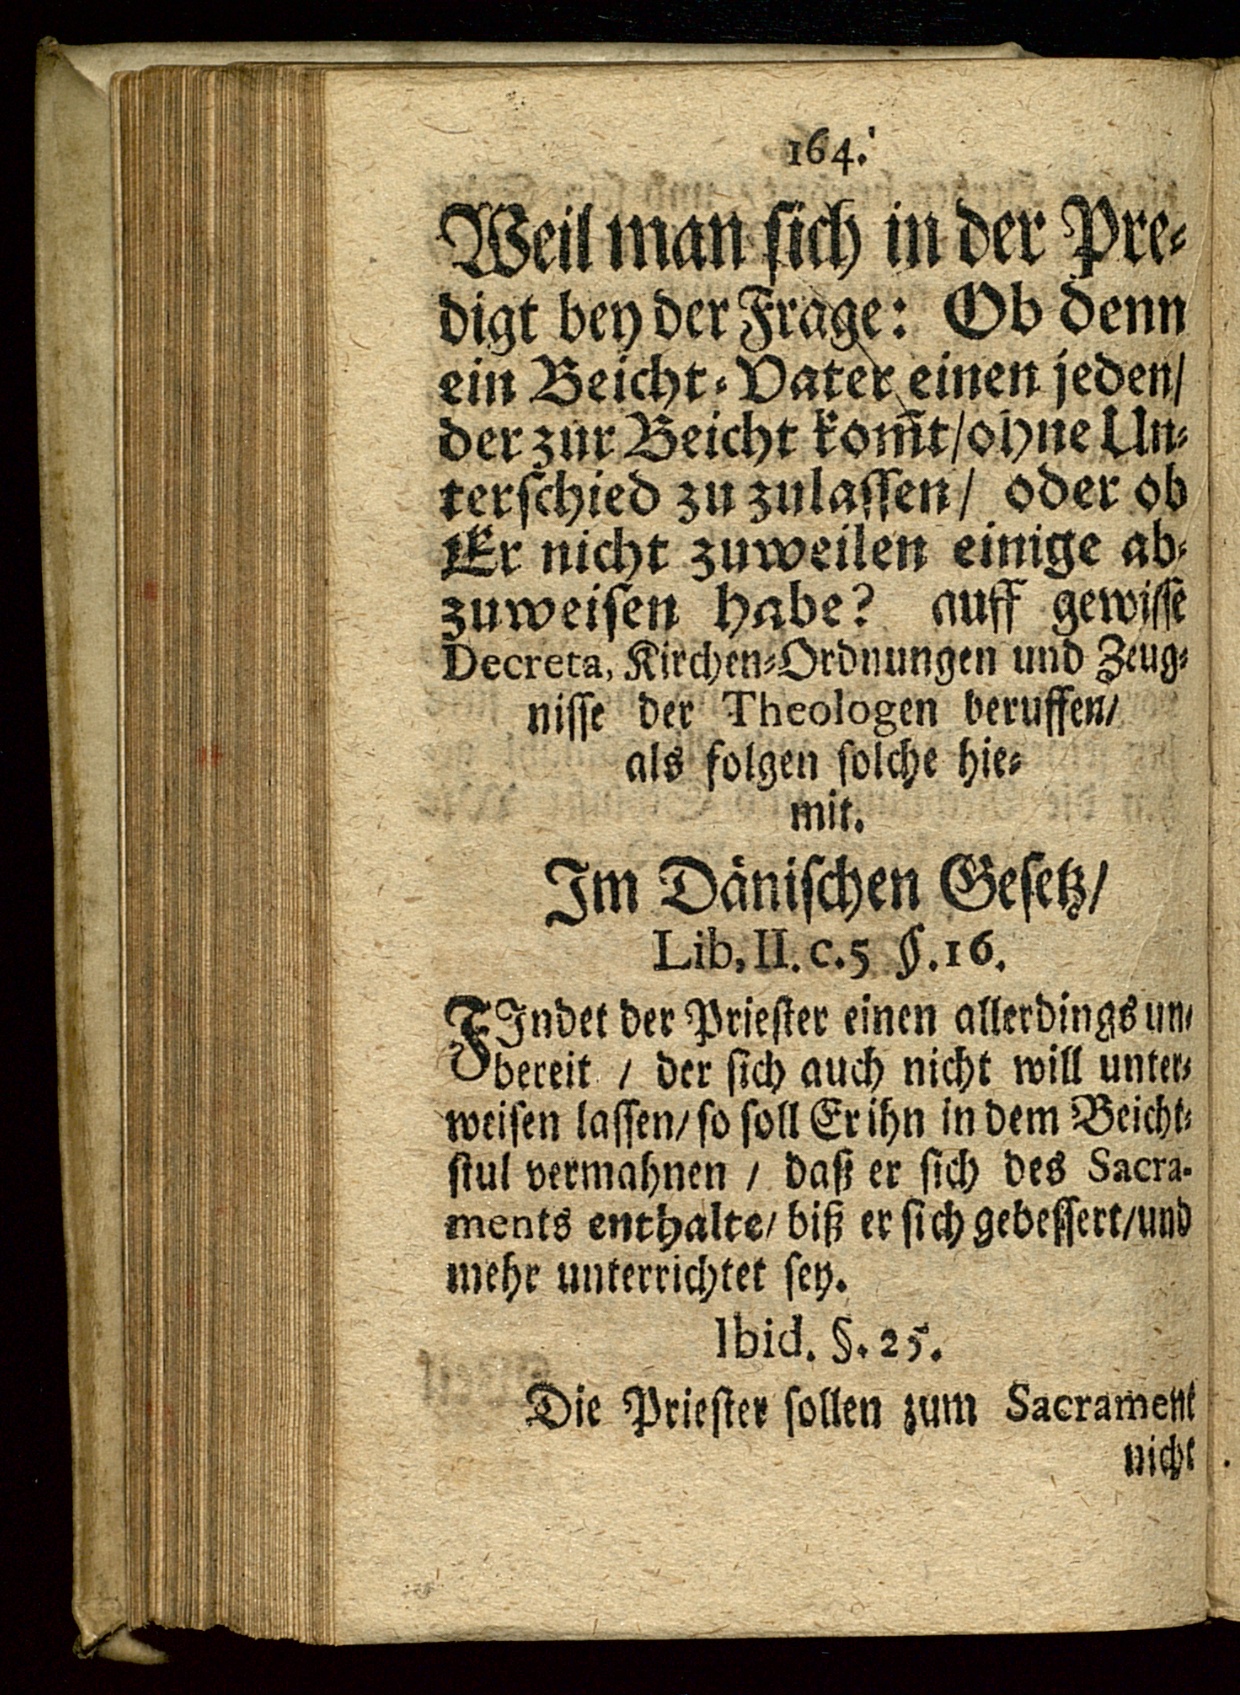 164.
Weil man sich in der Pre-
digt bey der Frage: Ob denn
ein Beicht-Vater einen jeden/
der zur Beicht kom̅t/ohne Un-
terschied zu zulassen/ oder ob
Er nicht zuweilen einige ab-
zuweisen habe? auff gewisse
Decreta, Kirchen-Ordnungen und Zeug-
nisse der Theologen beruffen/
als folgen solche hie-
mit.
Im Dänischen Gesetz/
Lib. II. c.5 §.16.
FIndet der Priester einen allerdings un-
bereit / der sich auch nicht will unter-
weisen lassen/ so soll Er ihn in dem Beicht-
stul vermahnen / daß er sich des Sacra-
ments enthalte/ biß er sich gebessert/und
mehr unterrichtet sey.
Ibid. §. 25.
Die Priester sollen zum Sacrament
nicht